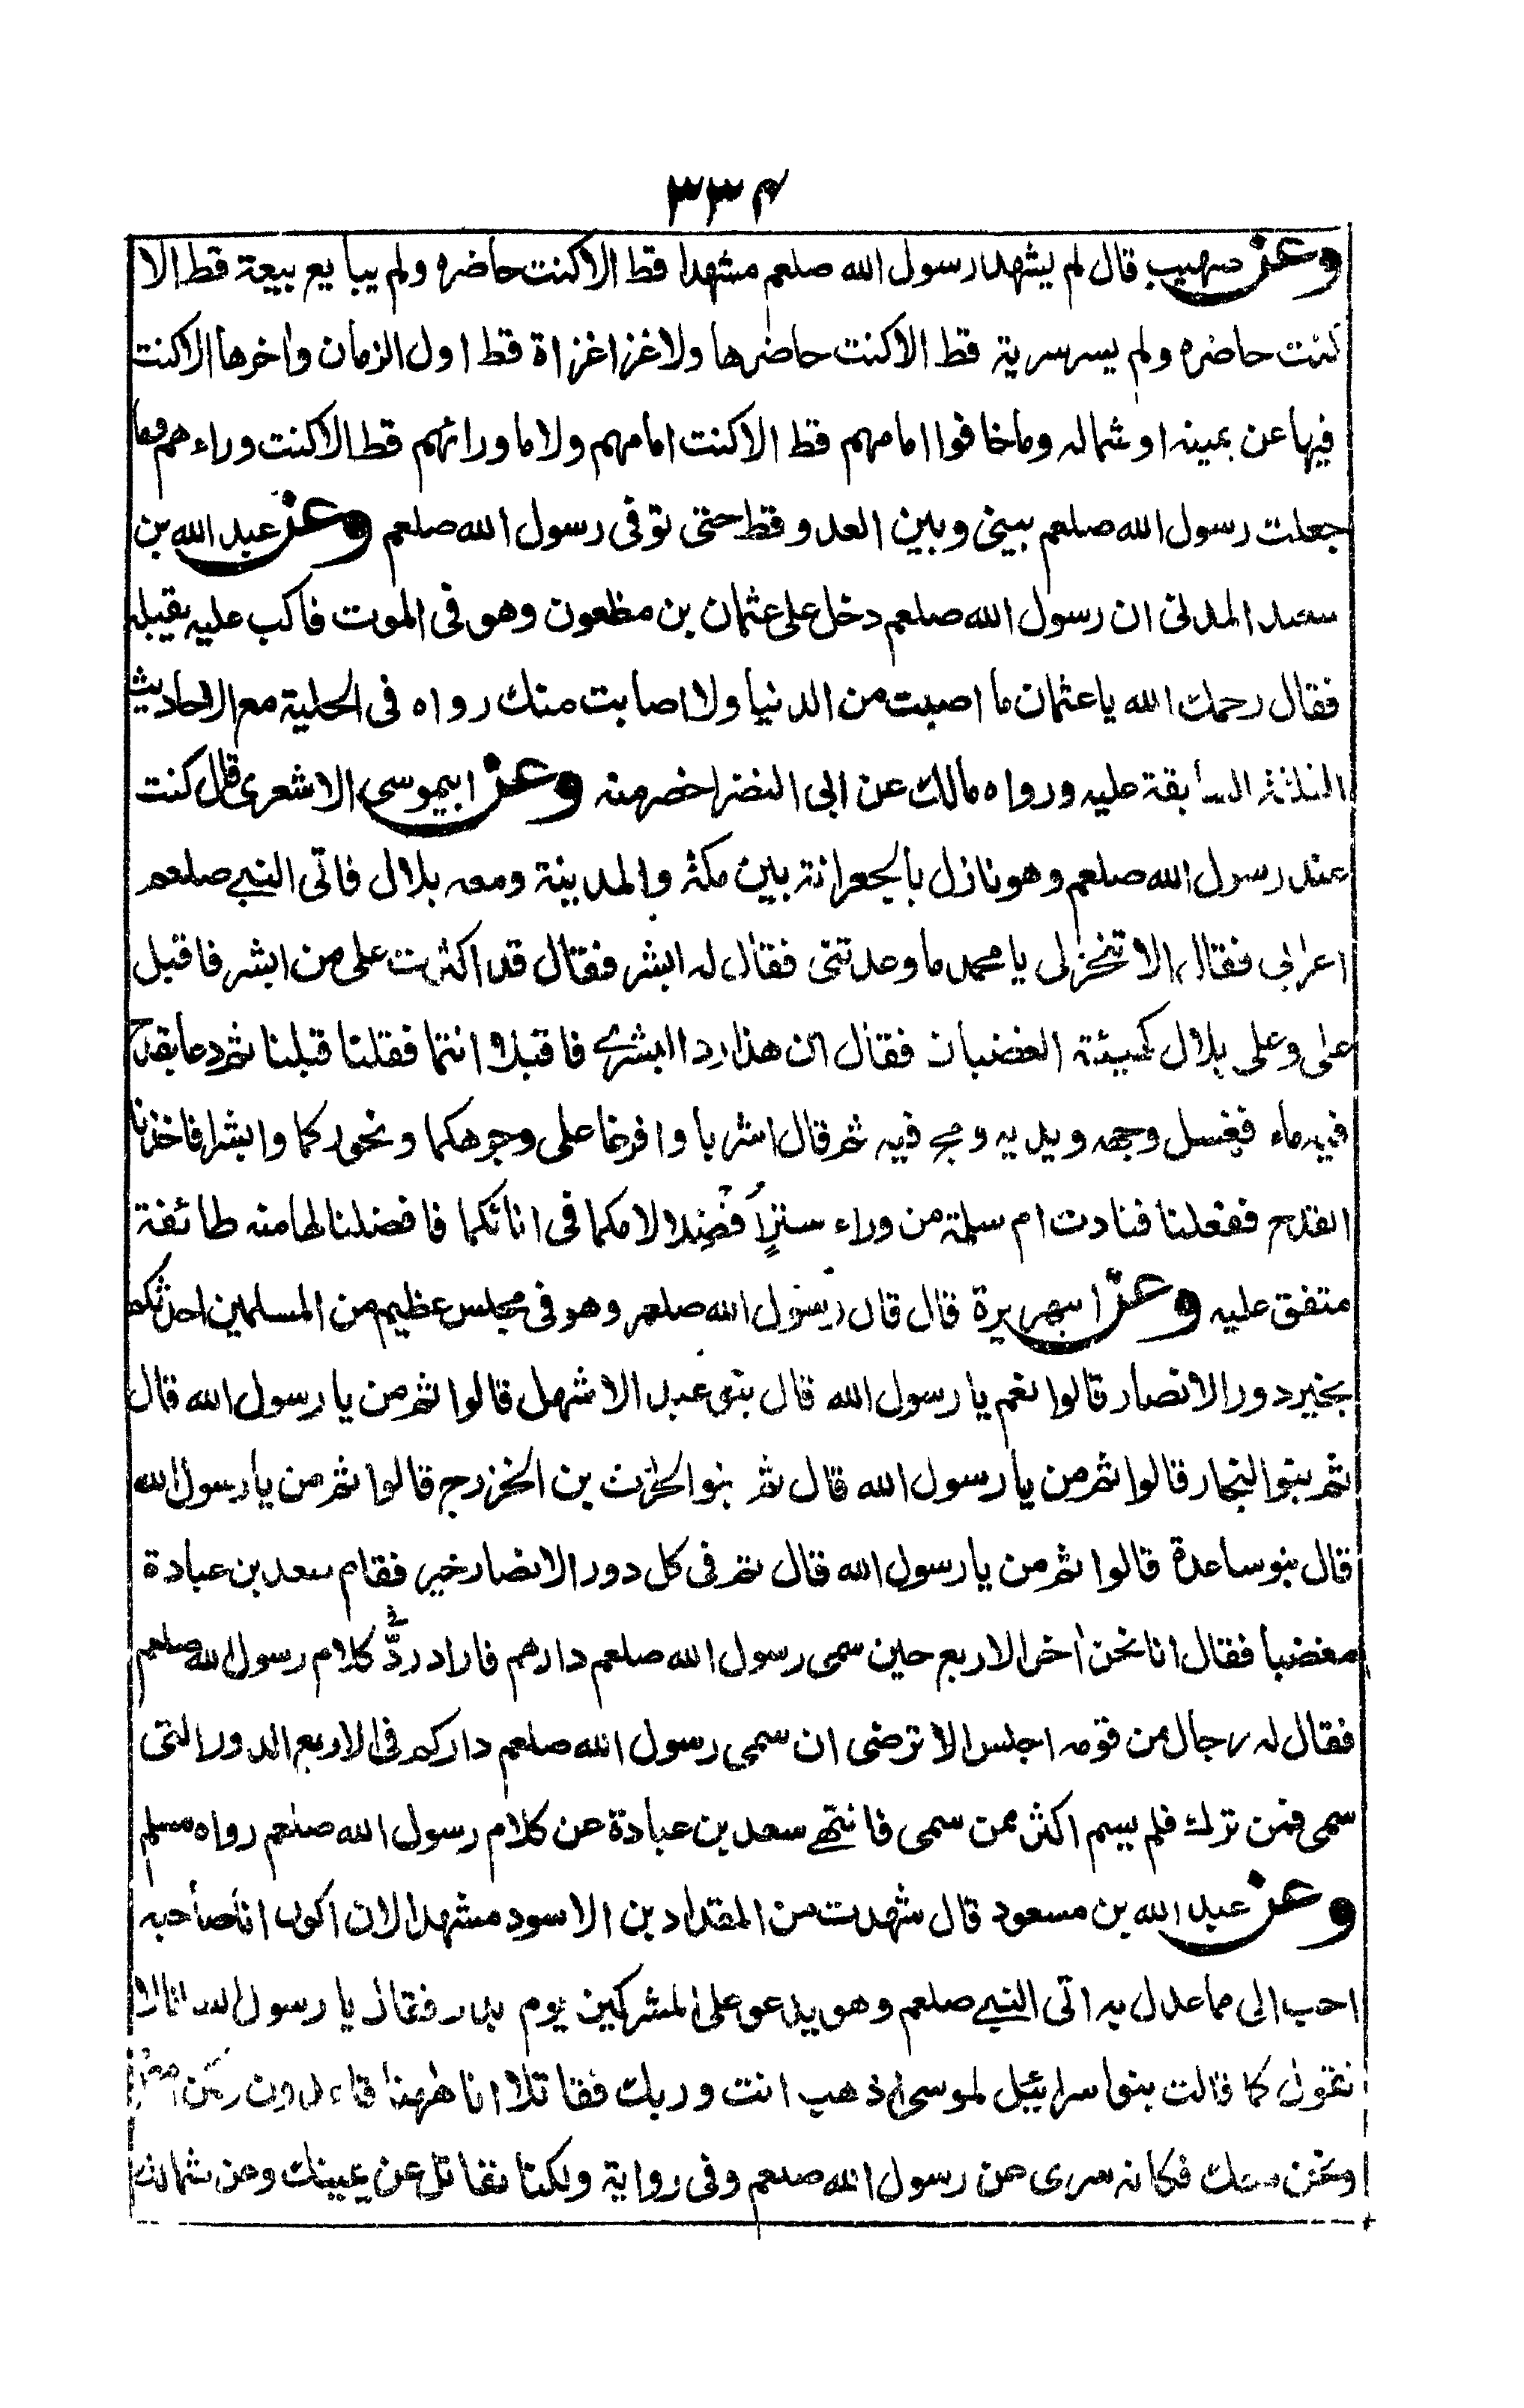 ٣٣٤
وعن صهيب قال لم يشهد رسول الله صلعم مشهدا قط الا كنت حاضره ولم يبايع بيعة قط الا
كنت حاضره ولم يسر سرية قط الا كنت حاضرها ولا غزا غزاة قط اول الزمان واخرها الا كنت
فيها عن يمينه او شماله وما خافوا امامهم قط الا كنت امامهم ولا ما ورائهم قط الا كنت وراءهم وما
جعلت رسول الله صلعم بيني وبين العدو قط حتى توفى رسول الله صلعم وعن عبد الله بن
سعيد المدنى ان رسول الله صلعم دخل على عثمان بن مظعون وهو فى الموت فاكب عليه يقبله
فقال رحمك الله يا عثمان ما اصبت من الدنيا ولا اصابت منك رواه فى الحلية مع الاحاديث
الثلثة السابقة عليه ورواه مالك عن ابى النضر اخصر منه وعن ابيموسى الاشعرى قال كنت
عند رسول الله صلعم وهو نازل بالجعرانة بين مكة والمدينة ومعه بلال فاتى النبي صلعم
اعرابى فقال الا تنجز لى يا محمد ما وعدتنى فقال له ابشر فقال قد اكثرت على من ابشر فاقبل
على وعلى بلال كهيئة الغضبان فقال ان هذا رد البشرى فاقبلا انتما فقلنا قبلنا ثم دعا بقدح
فيه ماء فغسل وجهه ويديه ومج فيه ثم قال اشربا وافرغا على وجوهكما ونحوركما وابشرا فاخذنا
القدح ففعلنا فنادت ام سلمة من وراء ستر افضلا لامكما فى انائكما فافضلنا لها منه طائفة
متفق عليه وعن ابيهريرة قال قال رسول الله صلعم وهو فى مجلس عظيم من المسلمين احدثكم
بخير دور الانصار قالوا نعم يا رسول الله قال بنو عبد الاشهل قالوا ثم من يا رسول الله قال
ثم بنو النجار قالوا ثم من يا رسول الله قال ثم بنو الحرث بن الخزرج قالوا ثم من يا رسول الله
قال بنو ساعدة قالوا ثم من يا رسول الله قال ثم فى كل دور الانصار خير فقام سعد بن عبادة
مغضبا فقال انا نحن اخر الاربع حين سمى رسول الله صلعم دارهم فاراد ردّ كلام رسول الله صلعم
فقال له رجال من قومه اجلس الا ترضى ان سمى رسول الله صلعم داركم فى الاربع الدور التى
سمى فمن ترك فلم يسم اكثر ممن سمى فانتهى سعد بن عبادة عن كلام رسول الله صلعم رواه مسلم
وعن عبد الله بن مسعود قال شهدت من المقداد بن الاسود مشهدا لان اكون انا صاحبه
احب الى مما عدل به اتى النبي صلعم وهو يدعو على المشركين يوم بدر فقال يا رسول الله انا لا
نقول كما قالت بنو اسرائيل لموسى اذهب انت وربك فقاتلا انا ههنا قاعدون ولكن امض
ونحن معك فكانه سرى عن رسول الله صلعم وفى رواية ولكنا نقاتل عن يمينك وعن شمالك